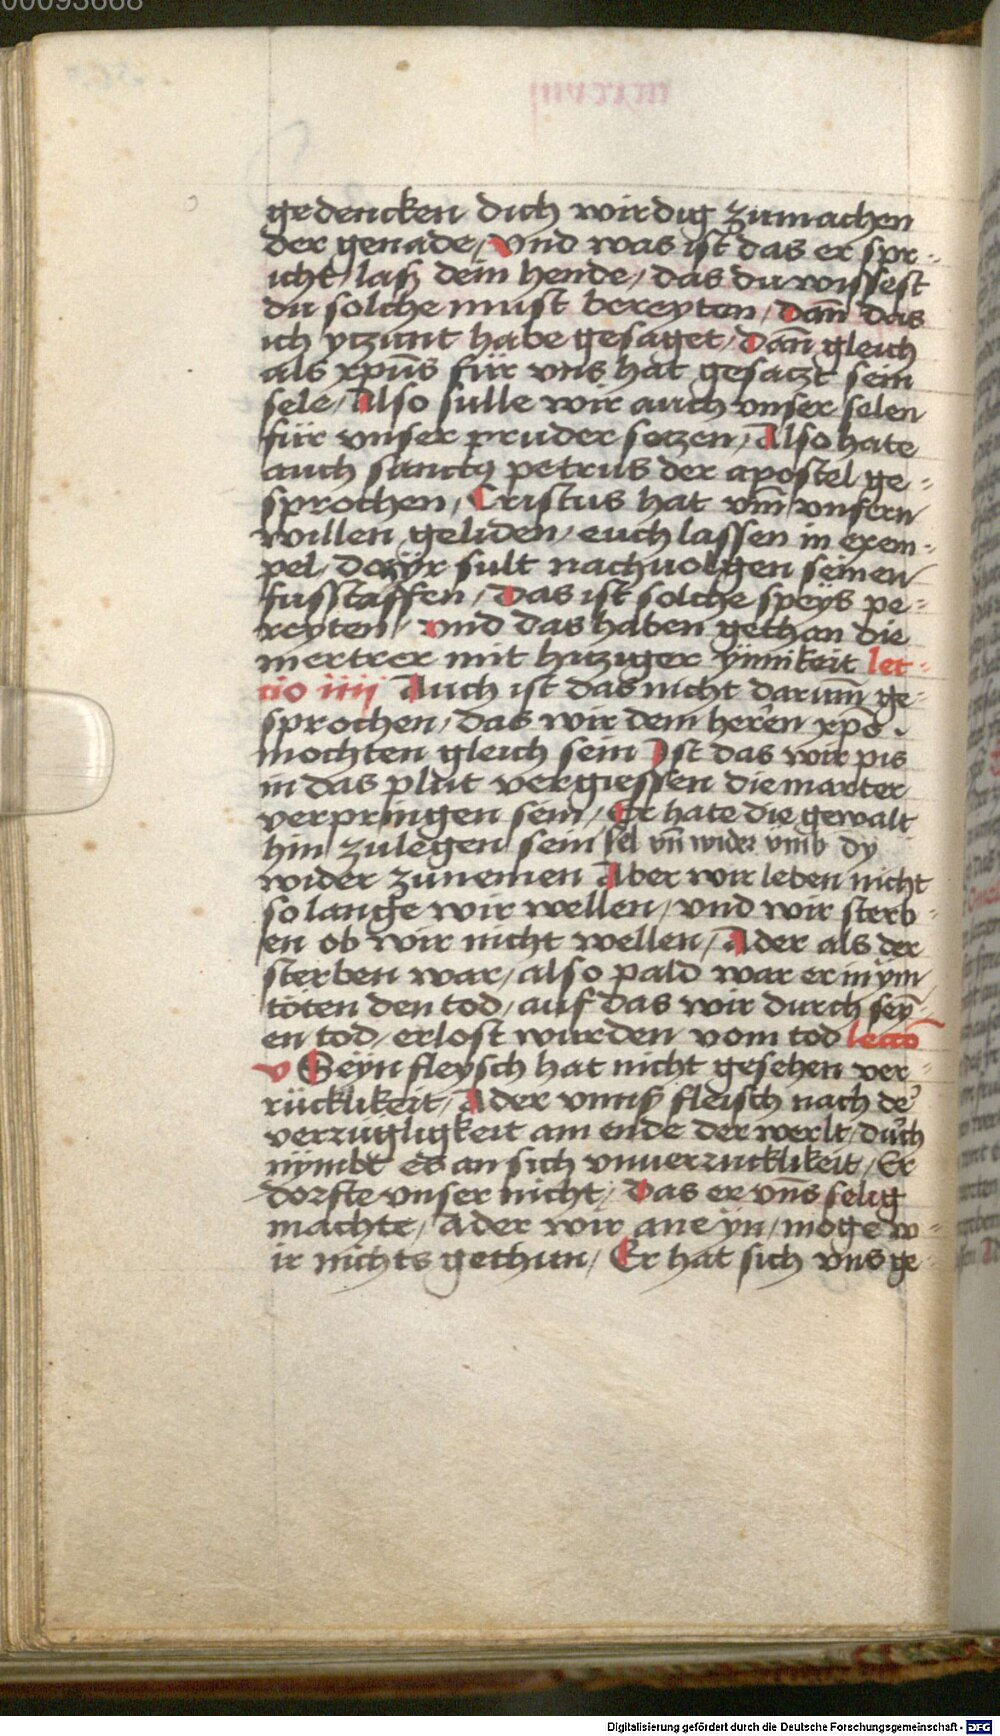 00093668
gedencken dich wirdig zumachen
der genade / vnd was ist das er spr-
icht / las dein hende / das du wissest
du solche must bereyten / dañ das
ich ytzunt habe gesaget / Dañ gleich
als xpũs für vns hat gesaczt sein
sele / Also sulle wir auch vnser selen
für vnser pruder seczen / Also hate
auch sanctꝰ petrus der apostel ge-
sprochen / Cristus hat vm̃ vnsern
willen geliden / euch lassen in exem-
pel / dozÿr sult nachuolgen seinen
fusstaffen / Das ist solche speÿs pe-
reyten / vnd das haben gethan die
mertrer mit hicziger ÿnnikeit let-
tio iiij Auch ist das nicht darum̃ ge-
sprochen / das wir dem herẽn xpõ
mochten gleich sein Ist das wir pis
in das plut vergiessen die marter
verpringen sein / Er hate die gewalt
hin zulegen sein sel vñ wider vmb dy
wider zunemen Aber wir leben nicht
so lange wir wellen / vnd wir sterb-
en ob wir nicht wellen / Ader als der
sterben war / also pald war er in ÿm
töten den tod / auf das wir durch seÿ-
en tod / erlost wurden vom tod lectõ
v Seÿn fleysch hat nicht gesehen ver-
rücklikeit / Ader vnnser fleisch nach de᷑
verzugligkeit am ende der werlt / du᷑ch
nÿmbt es an sich vnuerrucklikeit / Er
dorfte vnser nicht / Das er vñs selig
machte / Ader wir ane ÿn / moge w-
ir nichts gethun / Er hat sich vns ge-
Digitalisierung gefördert durch die Deutsche Forschungsgemeinschaft - DFG